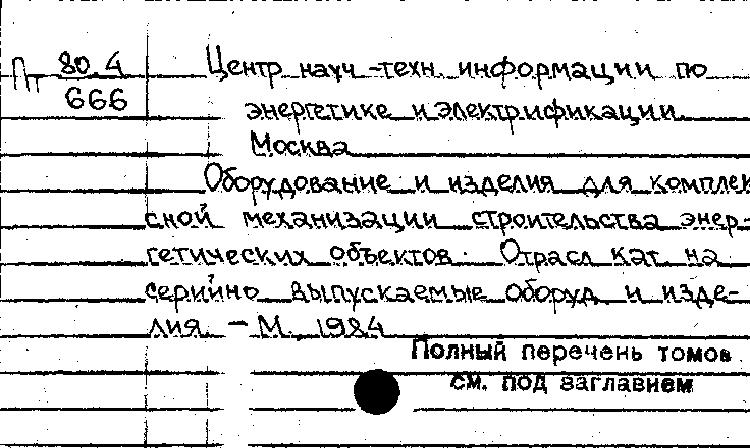 Пт 80.4
666
Центр науч.-техн. информации по
энергетике и электрификации.
Москва
Оборудование и изделия для комплек
сной механизации строительства энер-
гетических объектов. Отрасл. кат. на
серийно выпускаемые оборуд. и изде-
лия. – М., 1984
Полный перечень томов
см. под заглавием